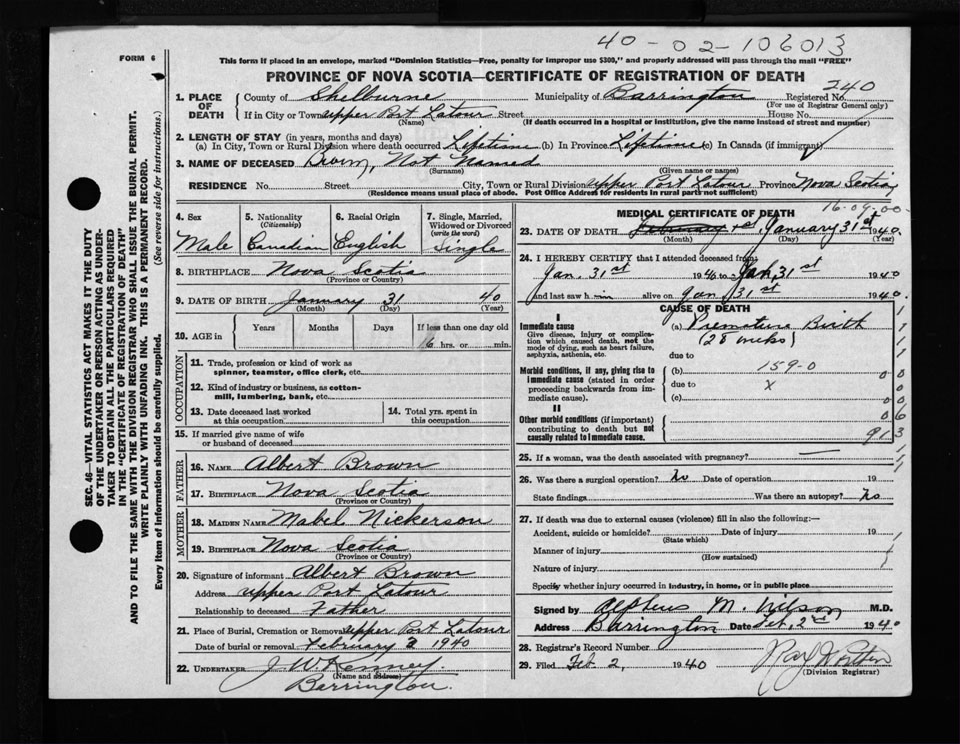 40-02-106013
FORM 6
This form if placed in an envelope, marked "Dominion Statistics—Free, penalty for improper use $300", and properly addressed will pass through the mail "FREE"
PROVINCE OF NOVA SCOTIA—CERTIFICATE OF REGISTRATION OF DEATH
240
1. PLACE OF DEATH County of Shelburne Municipality of Barrington Registered No.
(For use of Registrar General only)
If in City or Town Upper Port Latour Street House No.
(Name) (If death occurred in a hospital or institution, give the name instead of street and number)
2. LENGTH OF STAY (in years, months and days)
(a) In City, Town or Rural Division where death occurred Lifetime (b) In Province Lifetime (c) In Canada (if immigrant)
3. NAME OF DECEASED Brown, Not Named
(Surname) (Given name or names)
RESIDENCE No. Street City, Town or Rural Division Upper Port Latour Province Nova Scotia
(Residence means usual place of abode. Post Office Address for residents in rural parts not sufficient)
4. Sex Male
5. Nationality (Citizenship) Canadian
6. Racial Origin English
7. Single, Married, Widowed or Divorced (write the word) Single
8. BIRTHPLACE Nova Scotia
(Province or Country)
9. DATE OF BIRTH January 31 40
(Month) (Day) (Year)
10. AGE in Years Months Days If less than one day old
16 hrs. or min.
OCCUPATION
11. Trade, profession or kind of work as spinner, teamster, office clerk, etc.
12. Kind of industry or business, as cotton-mill, lumbering, bank, etc.
13. Date deceased last worked at this occupation
14. Total yrs. spent in this occupation
15. If married give name of wife or husband of deceased
FATHER
16. NAME Albert Brown
17. BIRTHPLACE Nova Scotia
(Province or Country)
MOTHER
18. MAIDEN NAME Mabel Nickerson
19. BIRTHPLACE Nova Scotia
(Province or Country)
20. Signature of informant Albert Brown
Address Upper Port Latour
Relationship to deceased Father
21. Place of Burial, Cremation or Removal Upper Port Latour
Date of burial or removal February 2 1940
22. UNDERTAKER J. W. Kenney
(Name and address)
Barrington.
MEDICAL CERTIFICATE OF DEATH
16-09-00-
23. DATE OF DEATH February 1st January 31st 1940
(Month) (Day) (Year)
24. I HEREBY CERTIFY that I attended deceased from
Jan. 31st 1940 to Jan. 31st 1940
and last saw him alive on Jan 31st 1940
CAUSE OF DEATH
I
Immediate cause
Give disease, injury or complication which caused death, not the mode of dying, such as heart failure, asphyxia, asthenia, etc.
(a) Premature Birth
(28 weeks)
due to
Morbid conditions, if any, giving rise to immediate cause (stated in order proceeding backwards from immediate cause).
(b) 159-0
due to x
(c)
II
Other morbid conditions (if important) contributing to death but not causally related to immediate cause.
913
25. If a woman, was the death associated with pregnancy? —
26. Was there a surgical operation? No Date of operation 19
State findings Was there an autopsy? No
27. If death was due to external causes (violence) fill in also the following:—
Accident, suicide or homicide? Date of injury 19
(State which)
Manner of injury
(How sustained)
Nature of injury
Specify whether injury occurred in industry, in home, or in public place
Signed by Alpheus M. Wilson M.D.
Address Barrington Date Feb. 2nd 1940
28. Registrar's Record Number
29. Filed Feb 2, 1940
(Division Registrar)
SEC. 46—VITAL STATISTICS ACT MAKES IT THE DUTY OF THE UNDERTAKER OR PERSON ACTING AS UNDERTAKER TO OBTAIN ALL THE PARTICULARS REQUIRED IN THE "CERTIFICATE OF REGISTRATION OF DEATH"
AND TO FILE THE SAME WITH THE DIVISION REGISTRAR WHO SHALL ISSUE THE BURIAL PERMIT.
WRITE PLAINLY WITH UNFADING INK. THIS IS A PERMANENT RECORD.
Every item of information should be carefully supplied. (See reverse side for instructions.)